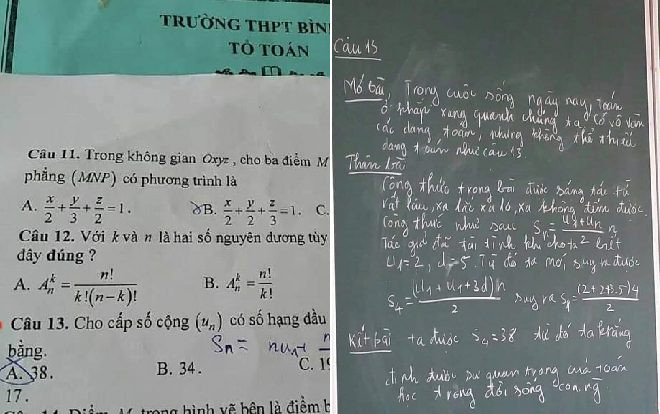 TRƯỜNG THPT BÌN
TỔ TOÁN
Câu 11. Trong không gian Oxyz , cho ba điểm M
phẳng (MNP) có phương trình là
A. x/2 + y/3 + z/2 = 1. B. x/2 + y/2 + z/3 = 1. C.
Câu 12. Với k và n là hai số nguyên dương tùy
đây đúng ?
A. A_n^k = n!/(k!(n-k)!) B. A_n^k = n!/k!
Câu 13. Cho cấp số cộng (u_n) có số hạng đầu
Sn = nu1+
bằng.
A. 38. B. 34. C. 1
17.
hình vẽ bên là điểm b
Câu 13
Mở bài, Trong cuộc sống ngày nay, Toán
ở khắp xung quanh chúng ta. Có vô vàn
các dạng toán, nhưng không thể thiếu
dạng toán như câu 13
Thân bài
Công thức trong bài được sáng tác từ
rất lâu, xa lắc xa lơ, xa không đếm được.
Công thức như sau S_n = (u1+un)n/2
Tác giả đã tài tình khi cho ta biết
u1=2, d=5. Từ đó ta mò, suy ra được
S4 = (u1+u1+3d)n/2 suy ra S4 = (2+2+3.5)4/2
Kết bài ta được S4=38 từ đó ta khẳng
định được sự quan trọng của toán
học trong đời sống con ng